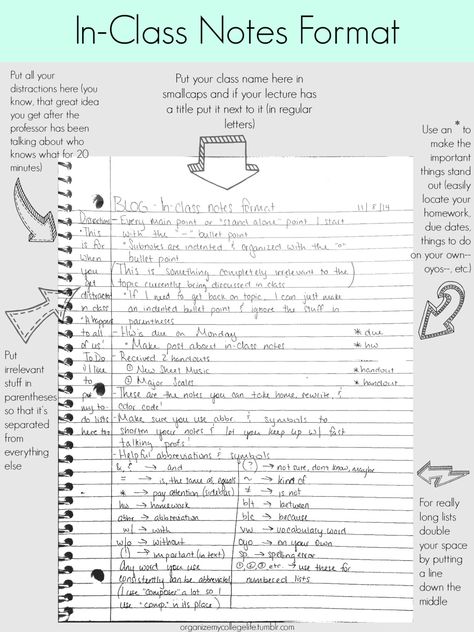 In-Class Notes Format
Put all your
distractions here (you
know, that great idea
you get after the
professor has been
talking about who
knows what for 20
minutes)
Put your class name here in
smallcaps and if your lecture has
a title put it next to it (in regular
letters)
Use an * to
make the
important
things stand
out (easily
locate your
homework,
due dates,
things to do
on your own--
oyos--, etc.)
Put
irrelevant
stuff in
parentheses
so that it's
separated
from
everything
else
For really
long lists
double
your space
by putting
a line
down the
middle
BLOG - In-class notes format 11/8/14
Distractions
*This
is for
when
you
get
distracted
in class
*A happens
to all
of us!
To Do
I like
to
put
my to-
do lists
here too
- Every main point or "stand alone" point I start
with the "-" bullet point
*Subnotes are indented & organized with the "o"
bullet point
(This is something completely irrelevant to the
topic currently being discussed in class)
*If I need to get back on topic, I can just make
an indented bullet point & ignore the stuff in
parentheses
- HW's due on Monday * due
*Make post about in-class notes * hw
- Received 2 handouts
① New Sheet Music * handout
② Major Scales * handout
- These are the notes you can take home, rewrite, &
color code!
- Make sure you use abbr. & symbols to
shorten your notes & let you keep up w/ fast
talking profs!
- Helpful abbreviations & symbols
&, → and
= → is, the same as, equals
* → pay attention (sidebar)
hw → homework
abbr → abbreviation
w/ → with
w/o → without
(!) → important (in text)
Any word you use
consistently can be abbreviated
(I use "composer" a lot so I
use "comp." in its place)
(?) → not sure, don't know, maybe
~ → kind of
≠ → is not
b/t → between
b/c → because
vw → vocabulary word
oyo → on your own
sp → spelling error
①, ②, etc. → use these for
numbered lists
organizemycollegelife.tumblr.com